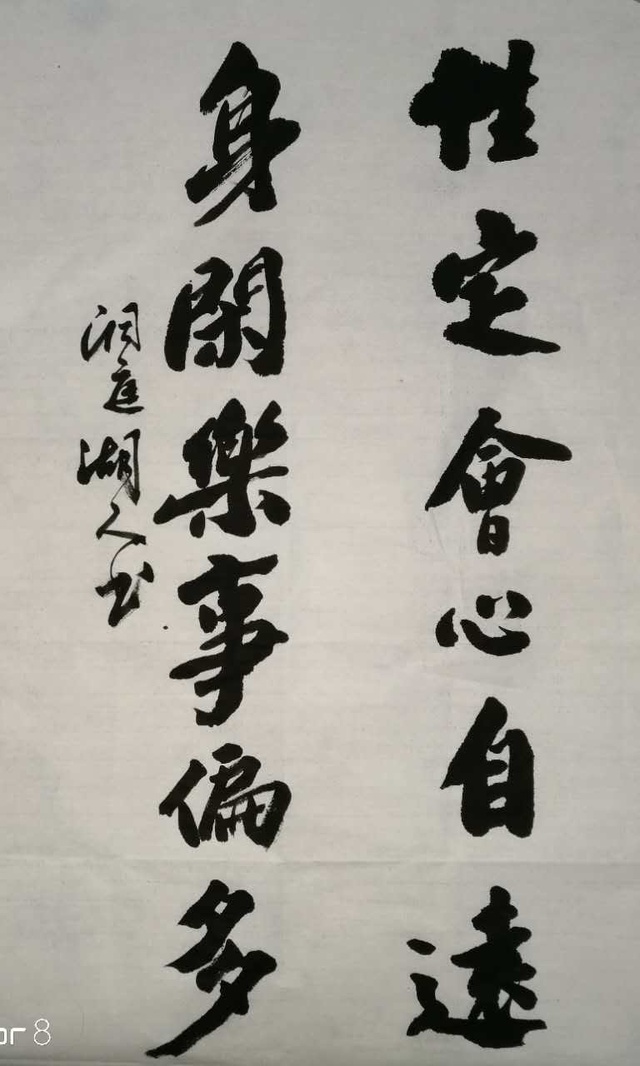 性定會心自遠
身閑樂事偏多
洞庭湖人书
or 8